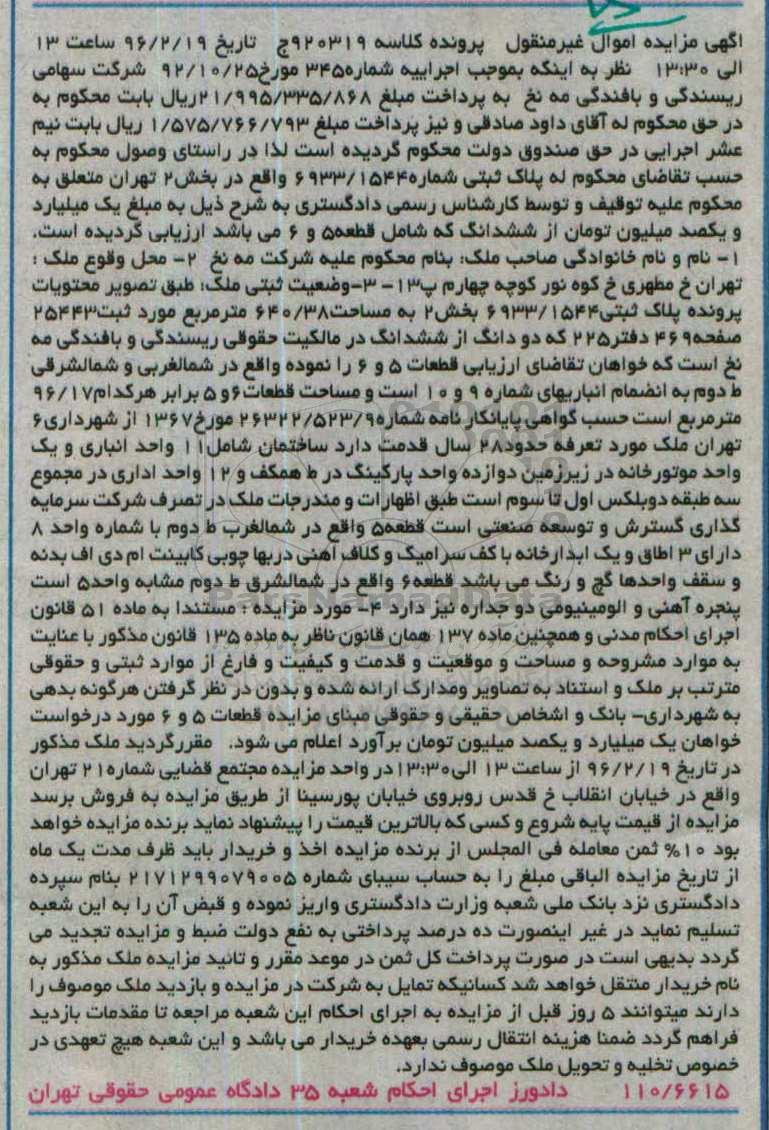 اگهی مزایده اموال غیرمنقول پرونده کلاسه ۹۲۰۳۱۹ج تاریخ ۹۶/۲/۱۹ ساعت ۱۳
الی ۱۳:۳۰ نظر به اینکه بموجب اجراییه شماره۳۴۵ مورخ۹۲/۱۰/۲۵ شرکت سهامی
ریسندگی و بافندگی مه نخ به پرداخت مبلغ ۲۱/۹۹۵/۳۳۵/۸۶۸ریال بابت محکوم به
در حق محکوم له آقای داود صادقی و نیز پرداخت مبلغ ۱/۵۷۵/۷۶۶/۷۹۳ ریال بابت نیم
عشر اجرایی در حق صندوق دولت محکوم گردیده است لذا در راستای وصول محکوم به
حسب تقاضای محکوم له پلاک ثبتی شماره۶۹۳۳/۱۵۴۴ واقع در بخش۲ تهران متعلق به
محکوم علیه توقیف و توسط کارشناس رسمی دادگستری به شرح ذیل به مبلغ یک میلیارد
و یکصد میلیون تومان از ششدانگ که شامل قطعه۵ و ۶ می باشد ارزیابی گردیده است.
۱- نام و نام خانوادگی صاحب ملک: بنام محکوم علیه شرکت مه نخ ۲- محل وقوع ملک :
تهران خ مطهری خ کوه نور کوچه چهارم پ۱۳- ۳-وضعیت ثبتی ملک: طبق تصویر محتویات
پرونده پلاک ثبتی۶۹۳۳/۱۵۴۴ بخش۲ به مساحت۶۴۰/۳۸ مترمربع مورد ثبت۲۵۴۴۳
صفحه۴۶۹ دفتر۲۲۵ که دو دانگ از ششدانگ در مالکیت حقوقی ریسندگی و بافندگی مه
نخ است که خواهان تقاضای ارزیابی قطعات ۵ و ۶ را نموده واقع در شمالغربی و شمالشرقی
ط دوم به انضمام انباریهای شماره ۹ و ۱۰ است و مساحت قطعات۶و ۵ برابر هرکدام۹۶/۱۷
مترمربع است حسب گواهی پایانکار نامه شماره۲۶۳۲۲/۵۲۳/۹ مورخ۱۳۶۷ از شهرداری۶
تهران ملک مورد تعرفه حدود۲۸ سال قدمت دارد ساختمان شامل۱۱ واحد انباری و یک
واحد موتورخانه در زیرزمین دوازده واحد پارکینگ در ط همکف و ۱۲ واحد اداری در مجموع
سه طبقه دوبلکس اول تا سوم است طبق اظهارات و مندرجات ملک در تصرف شرکت سرمایه
گذاری گسترش و توسعه صنعتی است قطعه۵ واقع در شمالغرب ط دوم با شماره واحد ۸
دارای ۳ اطاق و یک ابدارخانه با کف سرامیک و کلاف آهنی دربها چوبی کابینت ام دی اف بدنه
و سقف واحدها گچ و رنگ می باشد قطعه۶ واقع در شمالشرق ط دوم مشابه واحد۵ است
پنجره آهنی و الومینیومی دو جداره نیز دارد ۴- مورد مزایده : مستندا به ماده ۵۱ قانون
اجرای احکام مدنی و همچنین ماده ۱۳۷ همان قانون ناظر به ماده ۱۳۵ قانون مذکور با عنایت
به موارد مشروحه و مساحت و موقعیت و قدمت و کیفیت و فارغ از موارد ثبتی و حقوقی
مترتب بر ملک و استناد به تصاویر ومدارک ارائه شده و بدون در نظر گرفتن هرگونه بدهی
به شهرداری- بانک و اشخاص حقیقی و حقوقی مبنای مزایده قطعات ۵ و ۶ مورد درخواست
خواهان یک میلیارد و یکصد میلیون تومان برآورد اعلام می شود. مقررگردید ملک مذکور
در تاریخ ۹۶/۲/۱۹ از ساعت ۱۳ الی۱۳:۳۰در واحد مزایده مجتمع قضایی شماره۲۱ تهران
واقع در خیابان انقلاب خ قدس روبروی خیابان پورسینا از طریق مزایده به فروش برسد
مزایده از قیمت پایه شروع و کسی که بالاترین قیمت را پیشنهاد نماید برنده مزایده خواهد
بود ۱۰% ثمن معامله فی المجلس از برنده مزایده اخذ و خریدار باید ظرف مدت یک ماه
از تاریخ مزایده الباقی مبلغ را به حساب سیبای شماره ۲۱۷۱۲۹۹۰۷۹۰۰۵ بنام سپرده
دادگستری نزد بانک ملی شعبه وزارت دادگستری واریز نموده و قبض آن را به این شعبه
تسلیم نماید در غیر اینصورت ده درصد پرداختی به نفع دولت ضبط و مزایده تجدید می
گردد بدیهی است در صورت پرداخت کل ثمن در موعد مقرر و تائید مزایده ملک مذکور به
نام خریدار منتقل خواهد شد کسانیکه تمایل به شرکت در مزایده و بازدید ملک موصوف را
دارند میتوانند ۵ روز قبل از مزایده به اجرای احکام این شعبه مراجعه تا مقدمات بازدید
فراهم گردد ضمنا هزینه انتقال رسمی بعهده خریدار می باشد و این شعبه هیچ تعهدی در
خصوص تخلیه و تحویل ملک موصوف ندارد.
۱۱۰/۶۶۱۵ دادورز اجرای احکام شعبه ۳۵ دادگاه عمومی حقوقی تهران